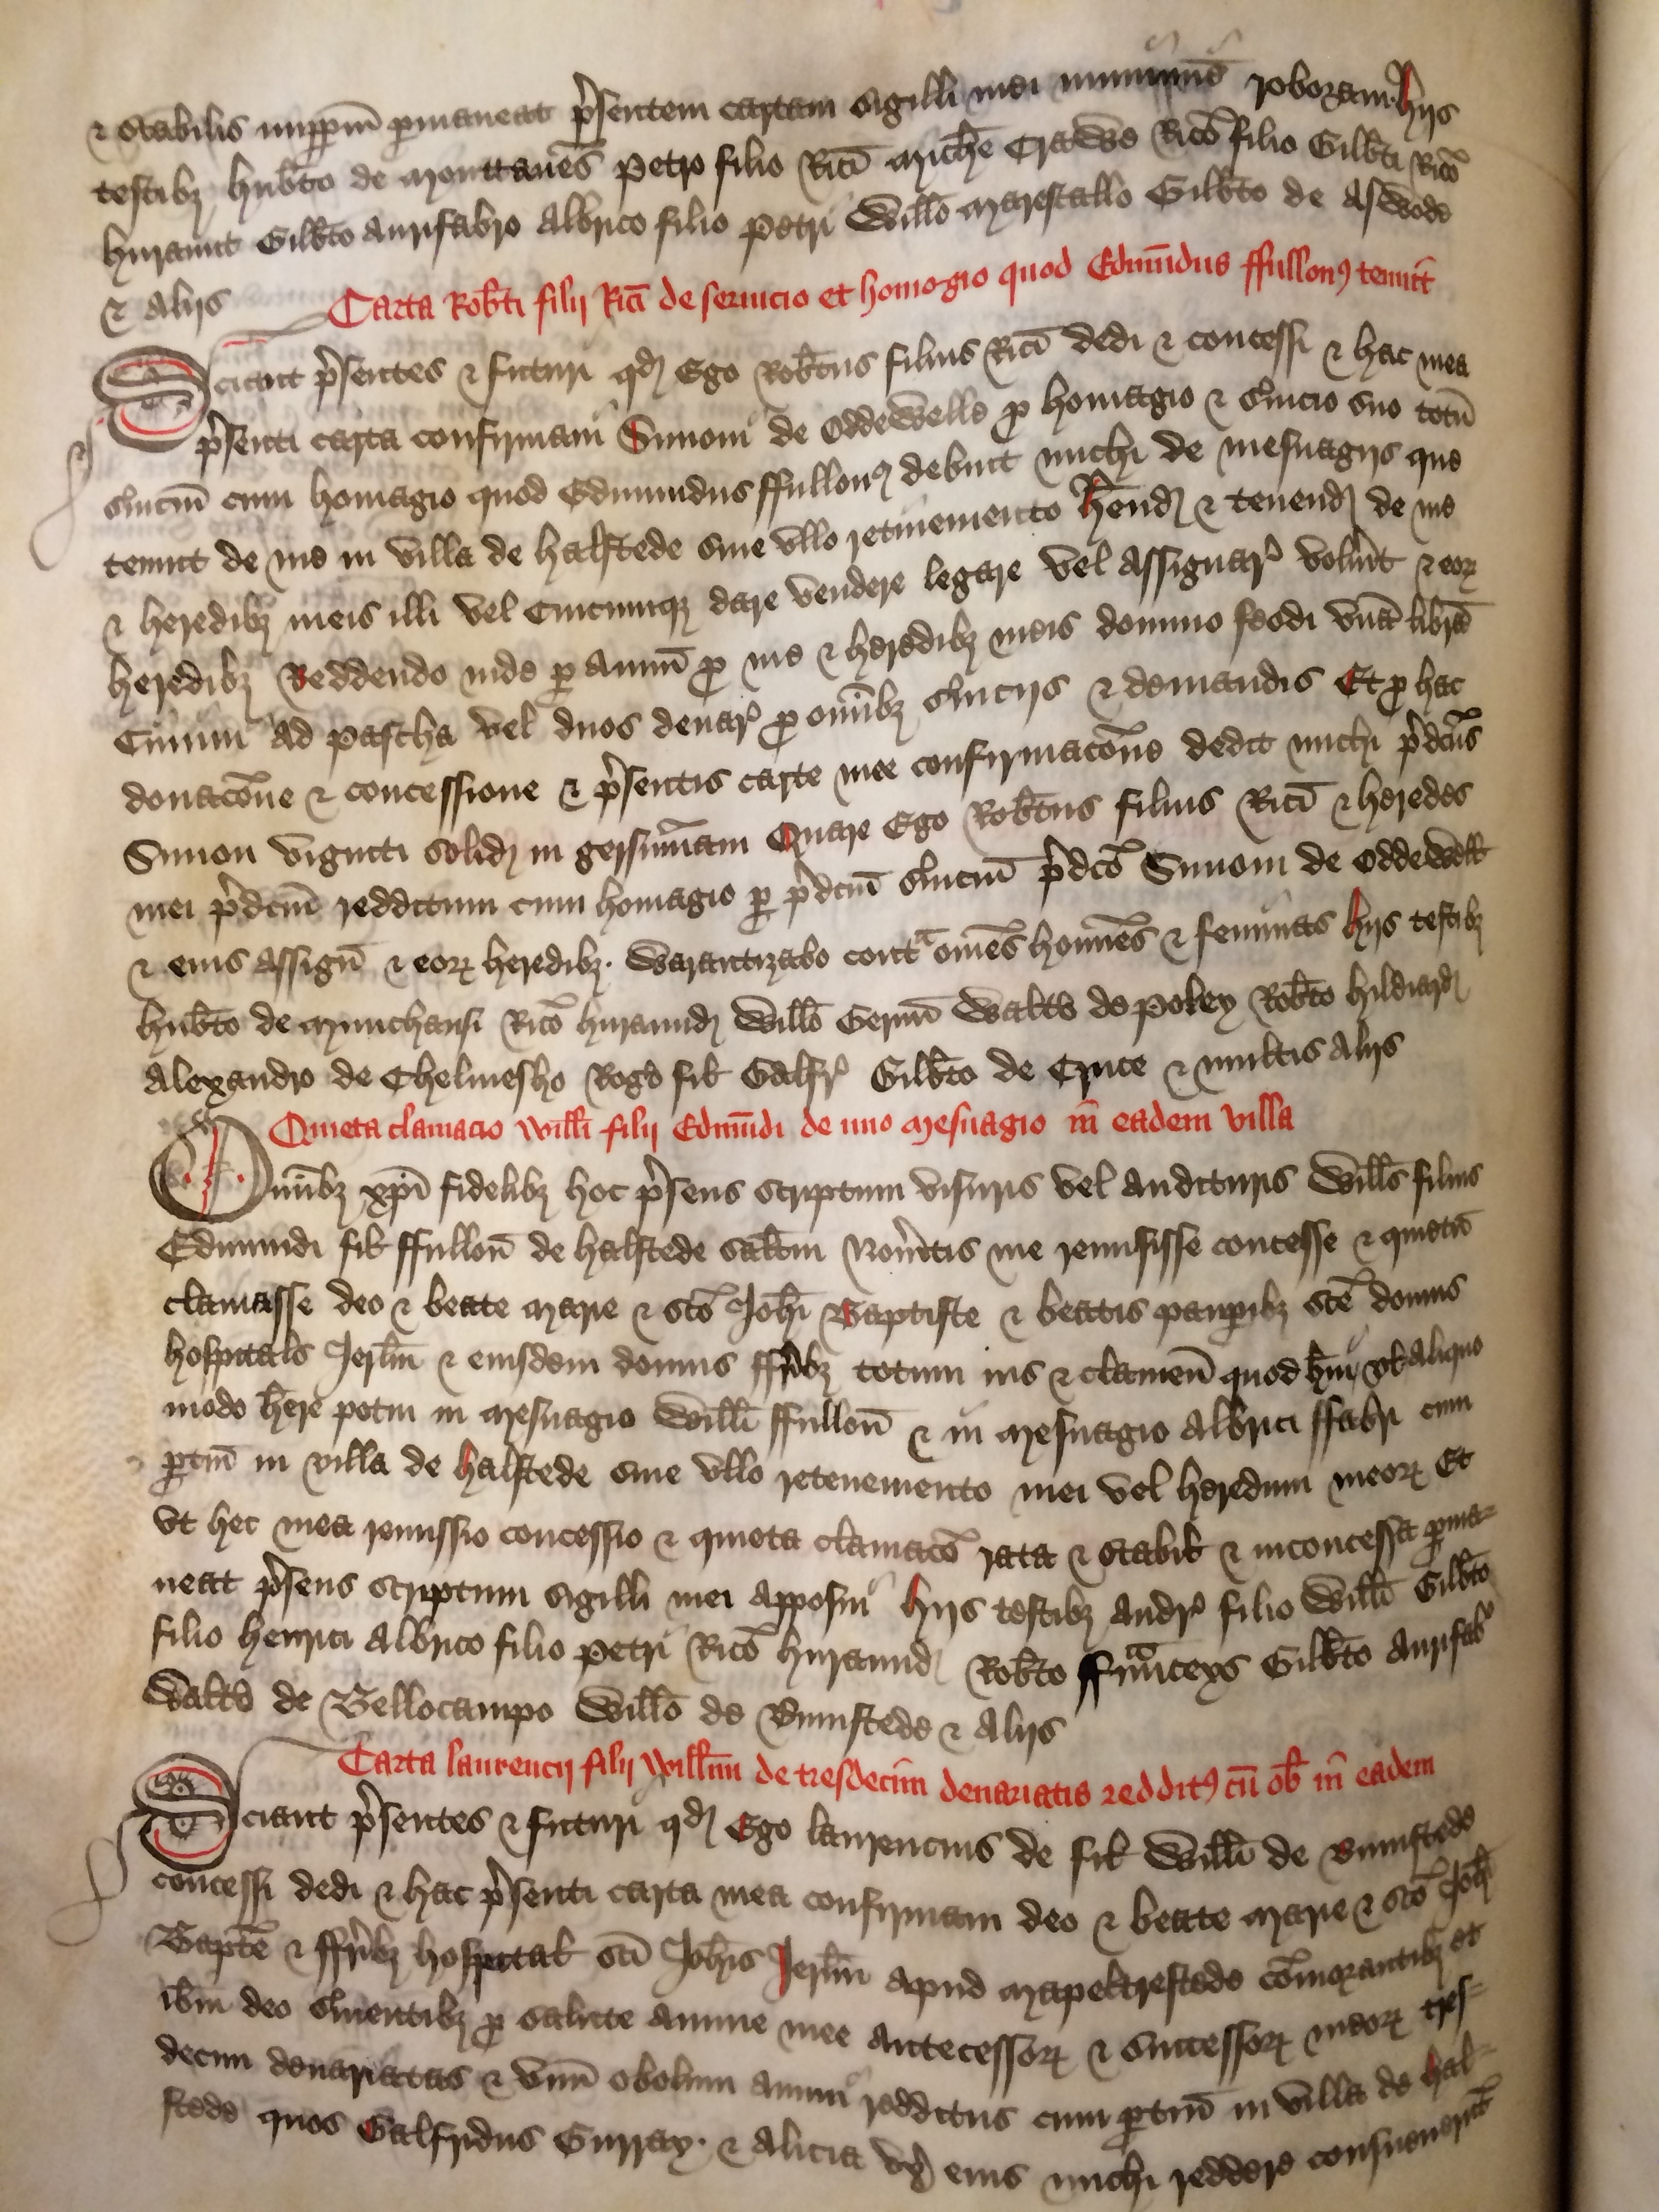 & stabilis imppm pmaneat psentem cartam sigilli mei roboraui hijs
testibz hubto de Petro filio Rici Miche Crawe Rico filio Gilbti Rico
huraunt Gilbto aurifabro Albrico filio Petri Willo Marescallo Gilbto de Aswode
& alijs
Carta Robti filij Rici de seruicio et homogio quod Edmundus ffullon9 tenuit
Sciant psentes & futuri qd Ego Robtus filius Rici dedi & concessi & hac mea
psenti carta confirmaui Simoni de Oddewelle p homagio & suicio suo totu
suiciu cum homagio quod Edmundus ffullon9 debuit michi de mesuagijs que
tenuit de me in villa de halstede sine vllo retinemento hend & tenend de me
& heredibz meis illi vel Cuicumqz dare vendere legare vel assignar volint & eor
heredibz Reddendo inde p annu p me & heredibz meis domino feodi vna libra
Cimini ad pascha vel duos denar p omibz suicijs & demandis Et p hac
donacoe & concessione & psentis carte mee confirmacoe dedit michi pdcus
Simon viginti solid in gersumam Quare Ego Robtus filius Rici & heredes
mei pdcm redditum cum homagio p pdcm suiciu pdco Simoni de Oddewell
& eius assign & eor heredibz warantizabo cont omes homies & feminas hijs testibz
hubto de Munchansi Rico huraund Willo Germ Walto de Poley Robto hildiard
Alexandro de Chelmesho Rogo fil Galfr Gilbto de Cruce & multis alijs
Quieta clamacio Willi filij Edmudi de uno Mesuagio in eadem villa
Omibz xpi fidelibz hoc psens scriptum visuris vel audituris Wills filius
Edmundi fil ffullon de halstede saltm Noueritis me remisisse concesse & quieta
clamasse deo & beate Marie & sco Johi Baptiste & beatis paupibz sce domus
hospitals Jerlm & eiusdem domus ffribz totum ius & clameu quod hui vl aliquo
modo here potui in Mesuagio Willi ffullon & in Mesuagio Albrici ffabri cum
ptin in villa de halstede sine vllo retenemento mei vel heredum meor Et
vt hec mea remissio concessio & quieta clamaco rata & stabil & inconcessa pma-
neat psens scriptum sigilli mei apposui hijs testibz Andr filio Willi Gilbto
filio henrici Albrico filio Petri Rico huraund Robto ffranceys Gilbto Aurifab
Walto de Bellocampo Willo de Bumstede & alijs
Carta laurencij filij Willmi de tresdecim denariatis reddit9 cu ob in eadem
Sciant psentes & futuri qd Ego laurencius de fil Willi de Bumstede
concessi dedi & hac psenti carta mea confirmaui deo & beate Marie & sco Johi
Bapte & ffribz hospital sci Johis Jerlm apud Mapeltrestede comorantibz et
ibm deo suientibz p salute anime mee antecessor & successor meor tres-
decim denariatas & vnu obolum annui redditus cum ptin in villa de hal-
stede quos Galfridus Gurray & Alicia vx eius michi reddere consueuerut